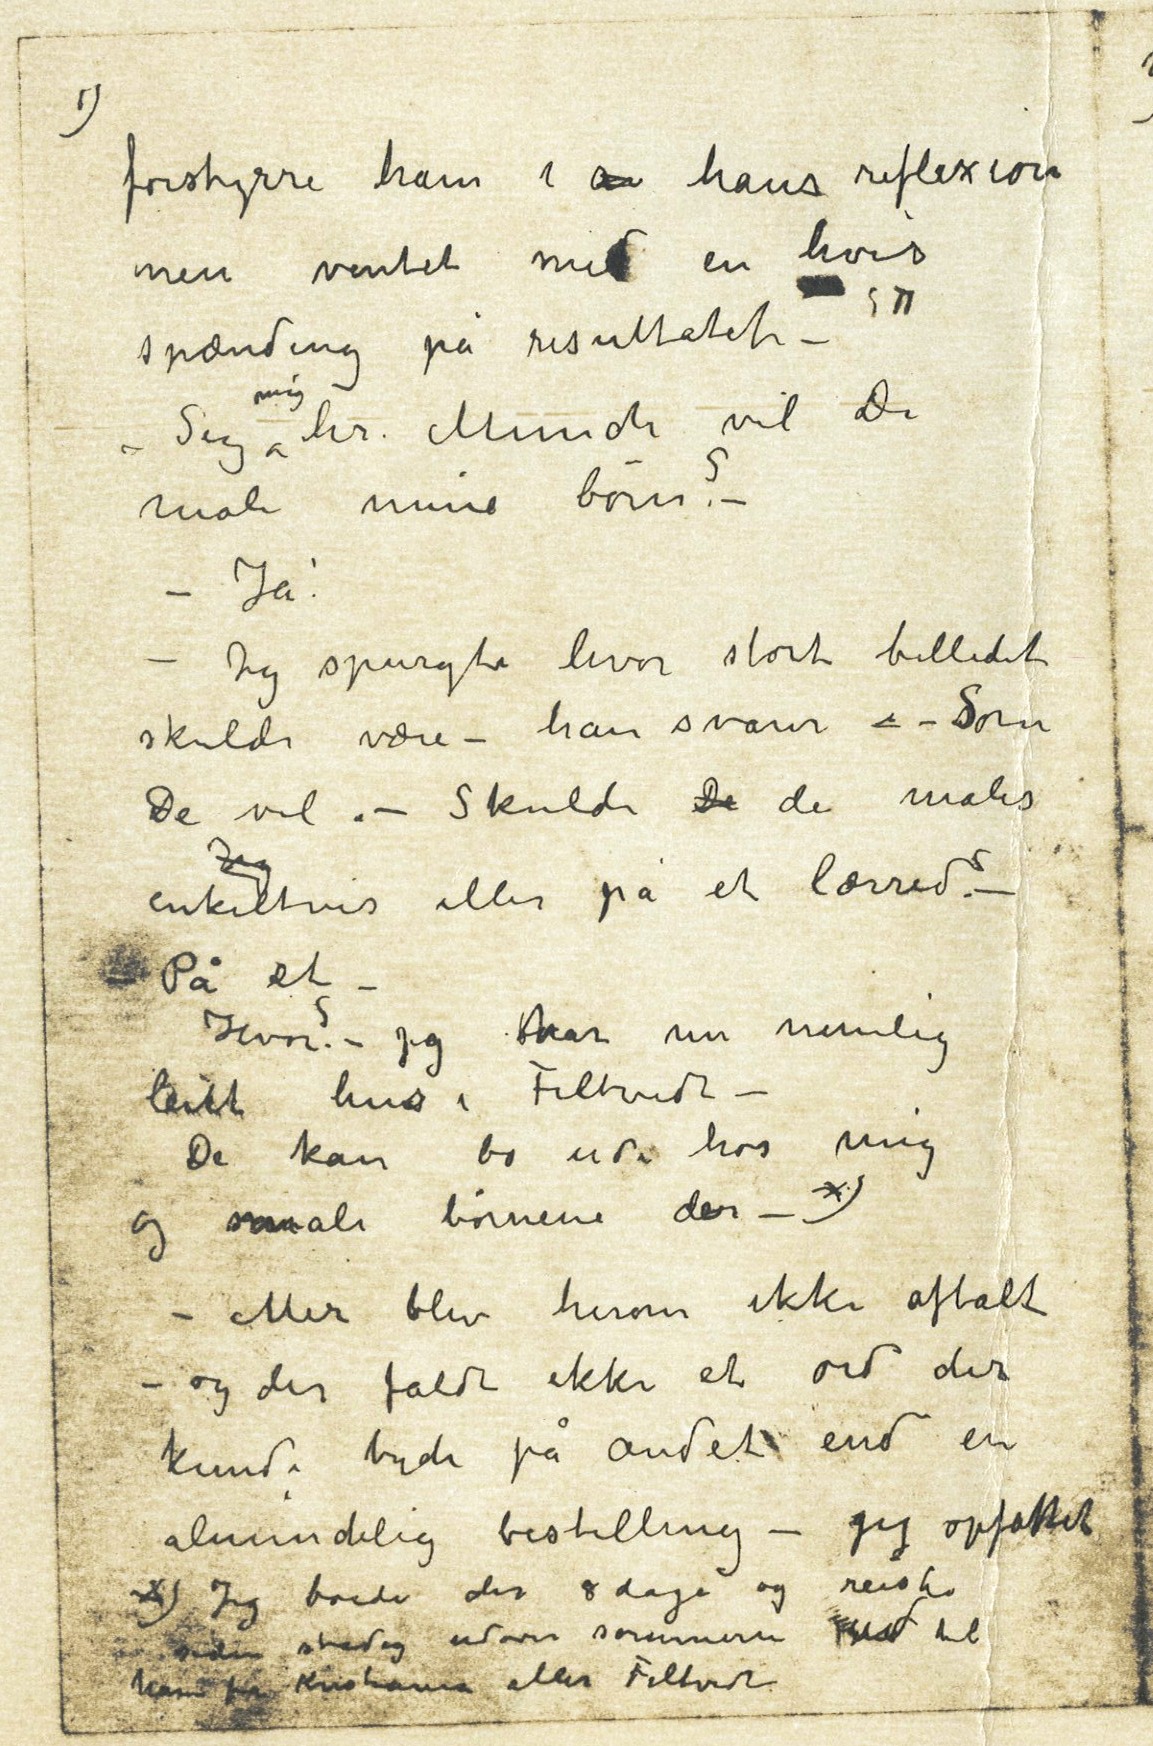 1)
forstyrre ham i hans reflexion
men ventet med en hvis
spænding på resultatet –
– Sig mig hr. Munch vil De
male mine børn? –
– Ja!
– Jeg spurgte hvor stort billedet
skulde være – han svarer – Som
De vil. – Skulde de males
enkeltvis eller på et lærred? –
– På et –
Hvor? – jeg har nu nemlig
leiet hus i Filtvedt –
De kan bo ude hos mig
og male børnene der – x)
– Mer blev herom ikke aftalt
– og der faldt ikke et ord der
kunde tyde på andet end en
almindelig bestilling – jeg opfattet
x) Jeg boede der 8 dage og reiste
siden stadig udover sommeren ned til
ham fra Kristiania eller Filtvedt